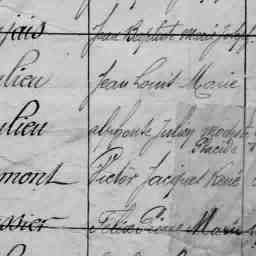 jais Jean Baptiste Marie Joseph
ulieu Jean Louis Marie
ulieu alphonse Julien modeste
Placide
mont Victor Jacques René
ssier Félix Pierre Marie